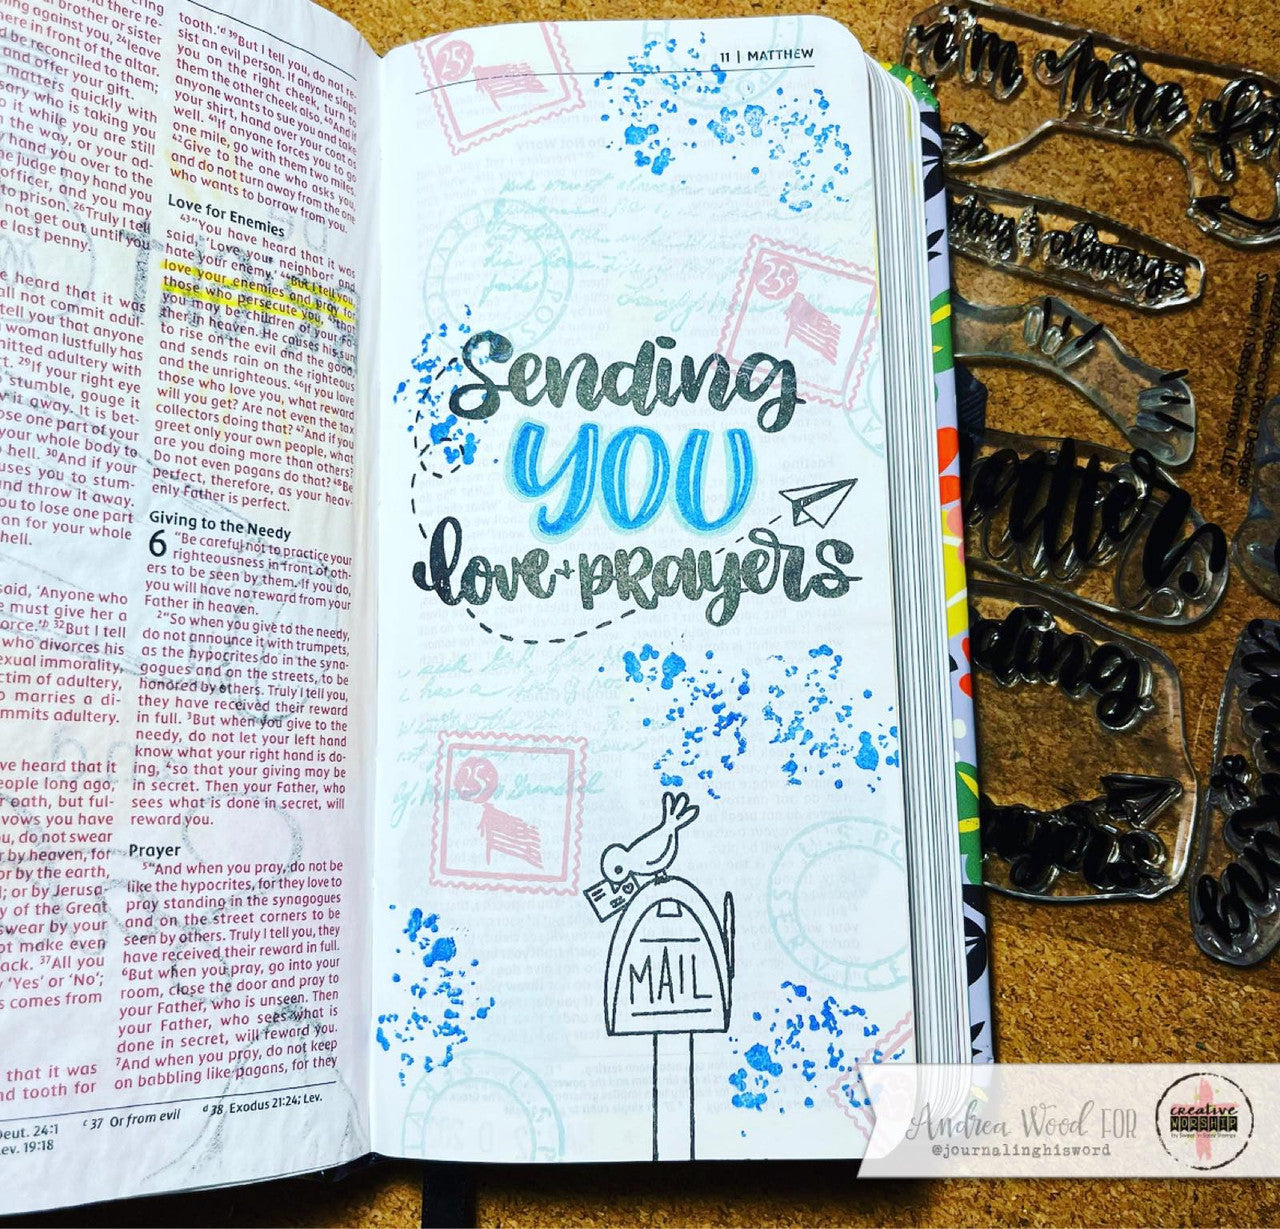 ther brother or sister
here in front of the altar.
d be reconciled to them;
and offer your gift.
matters quickly with
sary who is taking you
the way, or your ad-
hand you over to the
he judge may hand you
officer, and you may
to prison. ²⁶Truly I tell
not get out until you
e last penny.
e heard that it was
all not commit adul-
tell you that anyone
woman lustfully has
mitted adultery with
rt. ²⁹If your right eye
stumble, gouge it
w it away. It is bet-
ose one part of your
your whole body to
hell. ³⁰And if your
uses you to stum-
and throw it away.
ou to lose one part
an for your whole
hell.
said, ‘Anyone who
e must give her a
orce.’ᵇ ³²But I tell
who divorces his
exual immorality,
ctim of adultery,
o marries a di-
mmits adultery.
ve heard that it
eople long ago,
r oath, but ful-
vows you have
u, do not swear
r by heaven, for
or by the earth,
l; or by Jerusa-
y of the Great
swear by your
ot make even
ack. ³⁷All you
y ‘Yes’ or ‘No’;
s comes from
that it was
nd tooth for
tooth.’ᵈ ³⁹But I tell you, do not re-
sist an evil person. If anyone slaps
you on the right cheek, turn to
them the other cheek also. ⁴⁰And if
anyone wants to sue you and take
your shirt, hand over your coat as
well. ⁴¹If anyone forces you to go
one mile, go with them two miles.
⁴²Give to the one who asks you,
and do not turn away from the one
who wants to borrow from you.
Love for Enemies
⁴³“You have heard that it was
said, ‘Love your neighbor and
hate your enemy.’ ⁴⁴But I tell you,
love your enemies and pray for
those who persecute you, ⁴⁵that
you may be children of your Fa-
ther in heaven. He causes his sun
to rise on the evil and the good,
and sends rain on the righteous
and the unrighteous. ⁴⁶If you love
those who love you, what reward
will you get? Are not even the tax
collectors doing that? ⁴⁷And if you
greet only your own people, what
are you doing more than others?
Do not even pagans do that? ⁴⁸Be
perfect, therefore, as your heav-
enly Father is perfect.
Giving to the Needy
6 “Be careful not to practice your
righteousness in front of oth-
ers to be seen by them. If you do,
you will have no reward from your
Father in heaven.
²“So when you give to the needy,
do not announce it with trumpets,
as the hypocrites do in the syna-
gogues and on the streets, to be
honored by others. Truly I tell you,
they have received their reward
in full. ³But when you give to the
needy, do not let your left hand
know what your right hand is do-
ing, ⁴so that your giving may be
in secret. Then your Father, who
sees what is done in secret, will
reward you.
Prayer
⁵“And when you pray, do not be
like the hypocrites, for they love to
pray standing in the synagogues
and on the street corners to be
seen by others. Truly I tell you, they
have received their reward in full.
⁶But when you pray, go into your
room, close the door and pray to
your Father, who is unseen. Then
your Father, who sees what is
done in secret, will reward you.
⁷And when you pray, do not keep
on babbling like pagans, for they
Deut. 24:1
Lev. 19:18
ᶜ 37 Or from evil
ᵈ 38 Exodus 21:24; Lev.
11 | MATTHEW
25¢
25¢
Sending
YOU
love + prayers
25¢
MAIL
i'm here fo
day & always
Andrea Wood FOR
@journalinghisword
creative
WORSHIP
by Sweet 'n Sassy Stamps